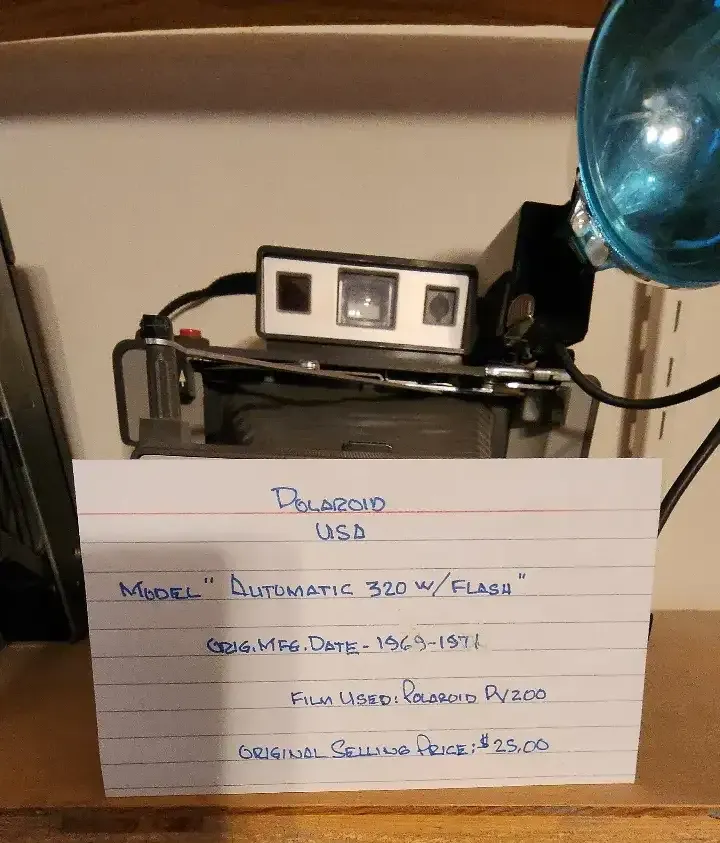 POLAROID
USA
MODEL " AUTOMATIC 320 W/FLASH "
ORIG. MFG. DATE - 1969-1971
FILM USED: POLAROID P/200
ORIGINAL SELLING PRICE: $25.00